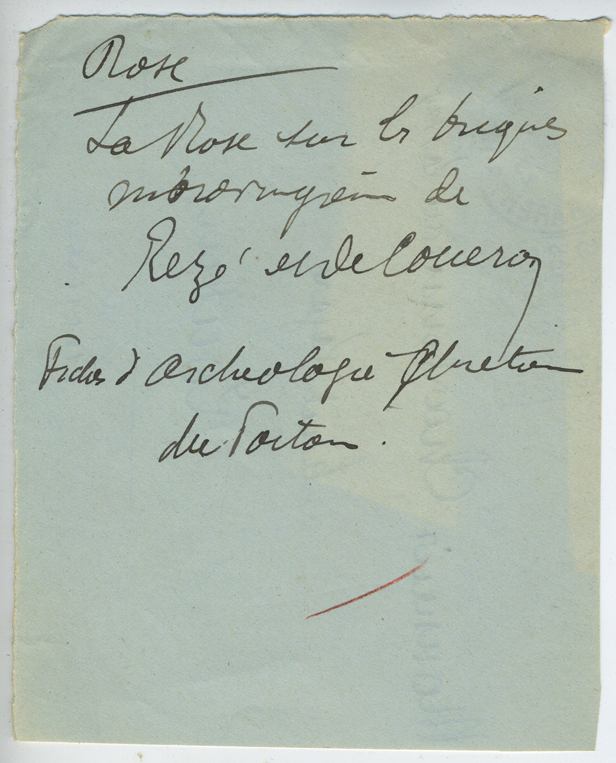 Rose
La Rose sur les briques
mérovingiennes de
Rezé et de Coueron
Fiches d'archeologie Chretienne
du Poitou.